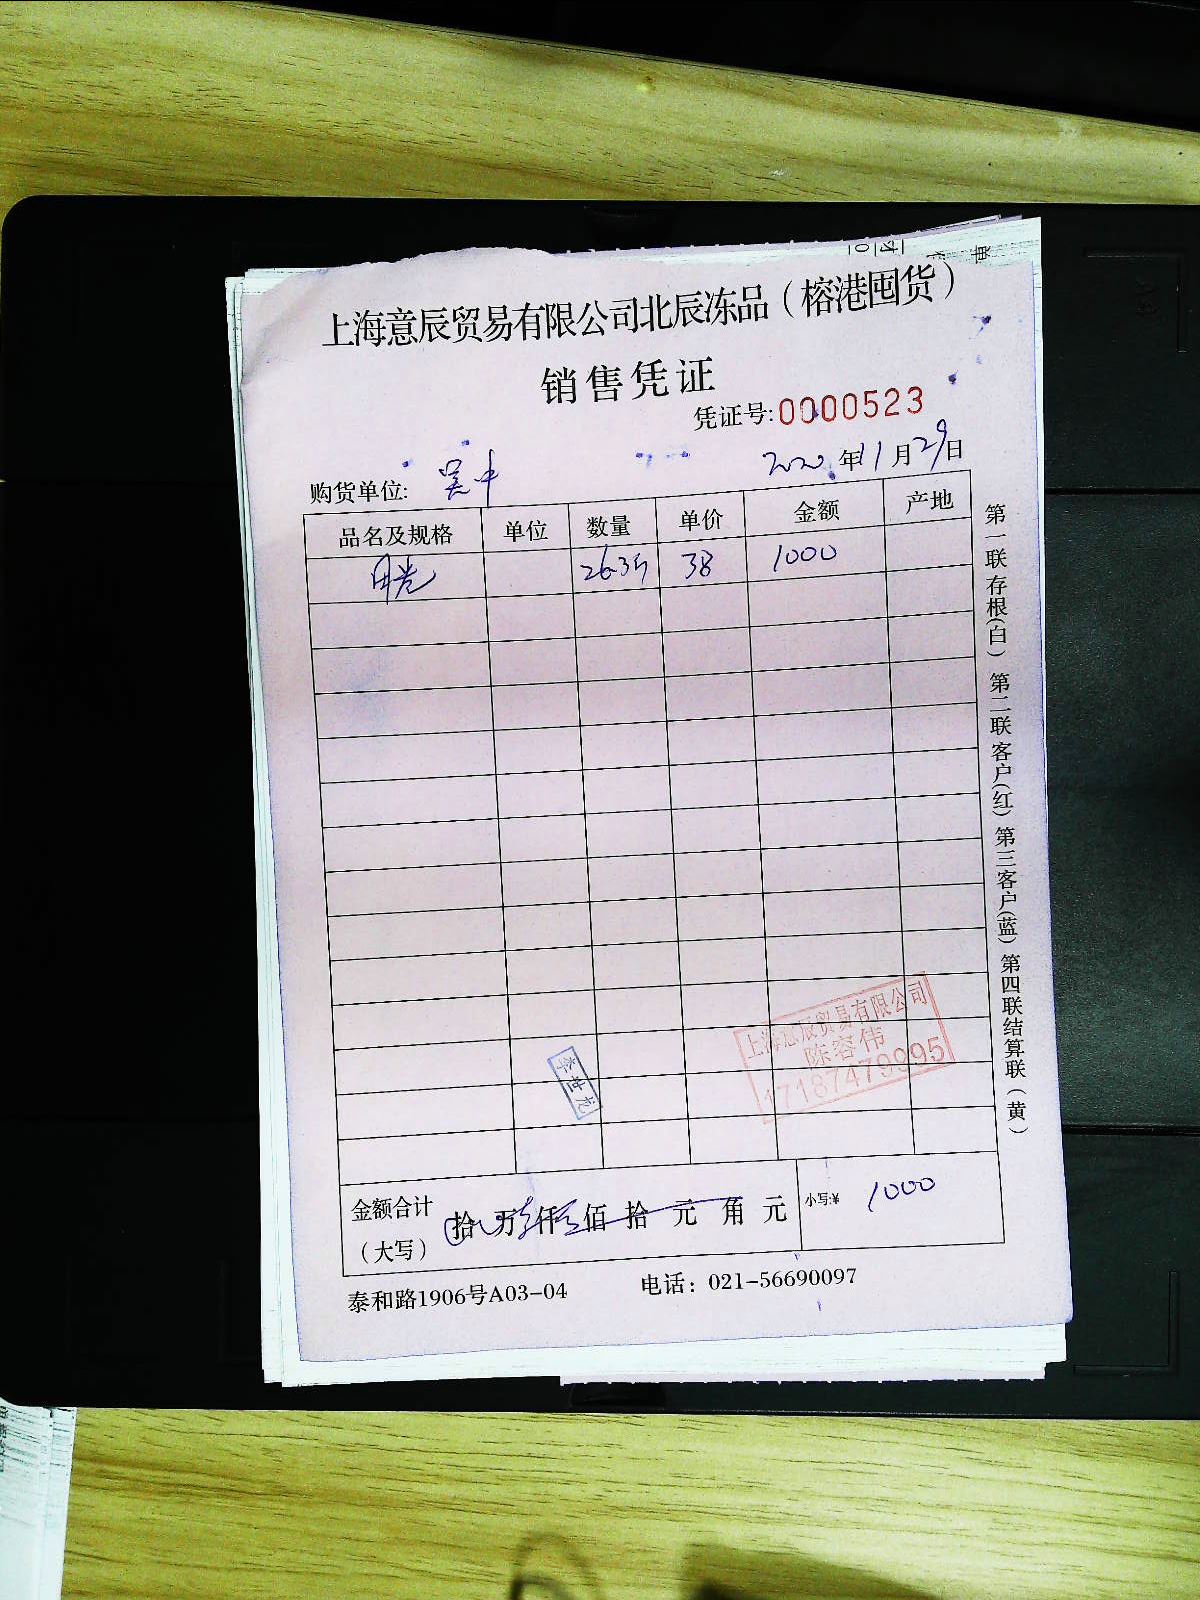 上海意辰贸易有限公司北辰冻品（榕港囤货）
销售凭证
凭证号:0000523
2020年11月29日
购货单位: 吴中
品名及规格 单位 数量 单价 金额 产地
26.35 38 1000
上海意辰贸易有限公司
陈容伟
17187479995
李世龙
金额合计
（大写） 拾 万 仟 佰 拾 元 角 元 小写:¥ 1000
泰和路1906号A03-04 电话：021-56690097
第一联存根（白）第二联客户（红）第三客户（蓝）第四联结算联（黄）